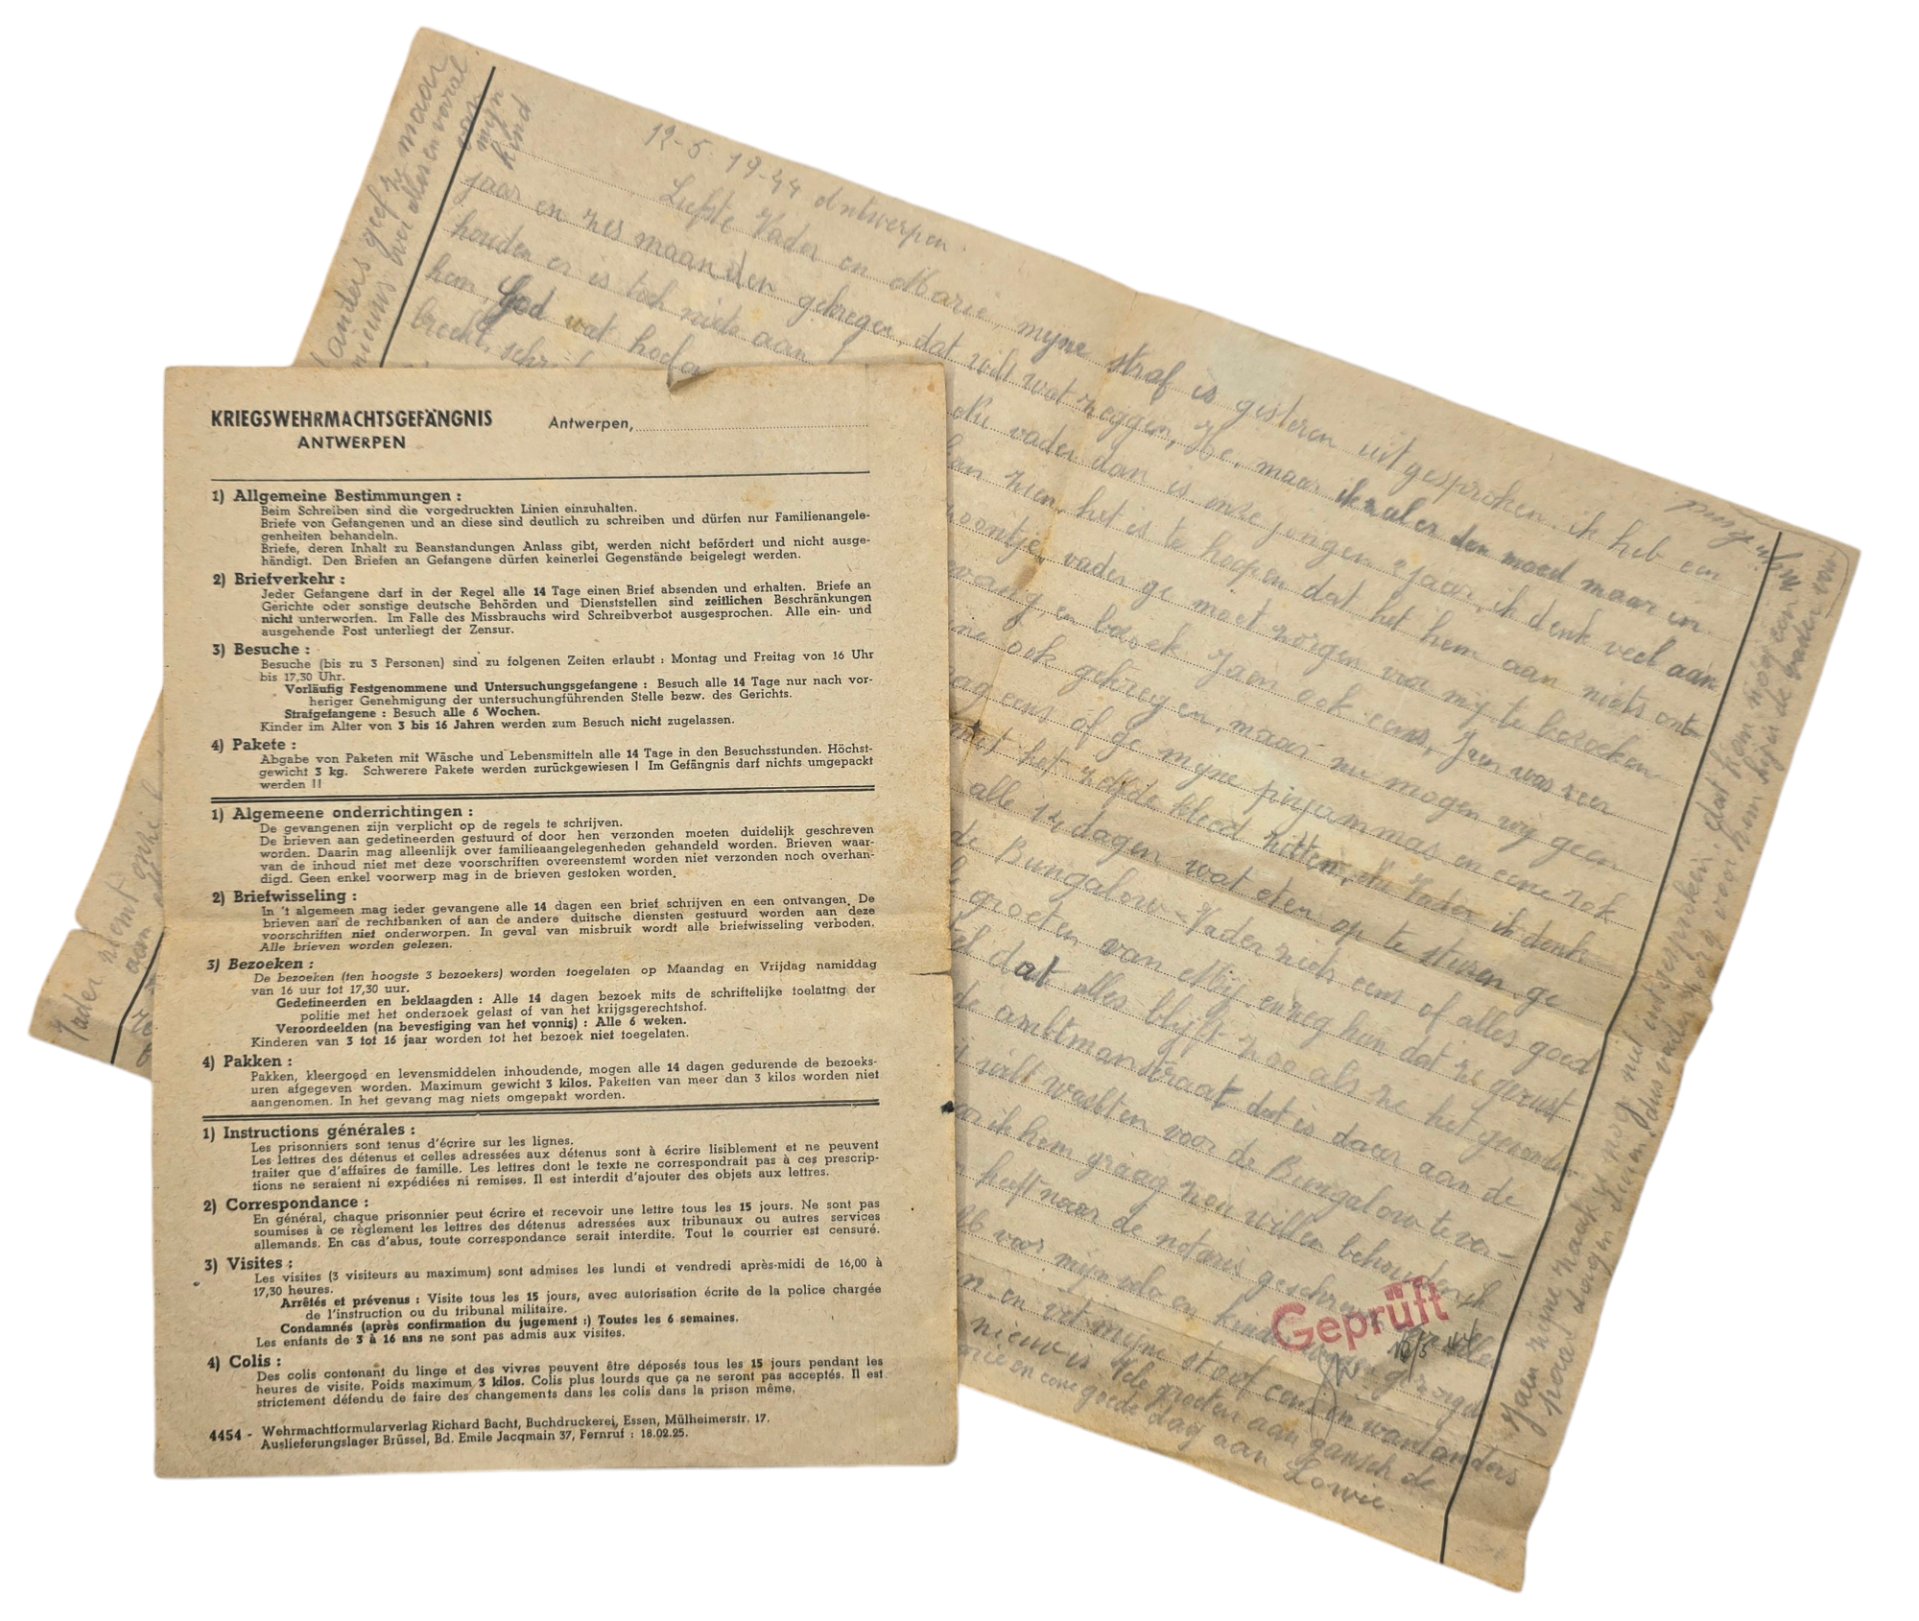 KRIEGSWEHRMACHTSGEFÄNGNIS
ANTWERPEN
Antwerpen,
1) Allgemeine Bestimmungen :
Beim Schreiben sind die vorgedruckten Linien einzuhalten.
Briefe von Gefangenen und an diese sind deutlich zu schreiben und dürfen nur Familienangele-
genheiten behandeln.
Briefe, deren Inhalt zu Beanstandungen Anlass gibt, werden nicht befördert und nicht ausge-
händigt. Den Briefen an Gefangene dürfen keinerlei Gegenstände beigelegt werden.
2) Briefverkehr :
Jeder Gefangene darf in der Regel alle 14 Tage einen Brief absenden und erhalten. Briefe an
Gerichte oder sonstige deutsche Behörden und Dienststellen sind zeitlichen Beschränkungen
nicht unterworfen. Im Falle des Missbrauchs wird Schreibverbot ausgesprochen. Alle ein- und
ausgehende Post unterliegt der Zensur.
3) Besuche :
Besuche (bis zu 3 Personen) sind zu folgenen Zeiten erlaubt : Montag und Freitag von 16 Uhr
bis 17,30 Uhr.
Vorläufig Festgenommene und Untersuchungsgefangene : Besuch alle 14 Tage nur nach vor-
heriger Genehmigung der untersuchungführenden Stelle bezw. des Gerichts.
Strafgefangene : Besuch alle 6 Wochen.
Kinder im Alter von 3 bis 16 Jahren werden zum Besuch nicht zugelassen.
4) Pakete :
Abgabe von Paketen mit Wäsche und Lebensmitteln alle 14 Tage in den Besuchsstunden. Höchst-
gewicht 3 kg. Schwerere Pakete werden zurückgewiesen ! Im Gefängnis darf nichts umgepackt
werden !!
1) Algemeene onderrichtingen :
De gevangenen zijn verplicht op de regels te schrijven.
De brieven aan gedetineerden gestuurd of door hen verzonden moeten duidelijk geschreven
worden. Daarin mag alleenlijk over familieaangelegenheden gehandeld worden. Brieven waar-
van de inhoud niet met deze voorschriften overeenstemt worden niet verzonden noch overhan-
digd. Geen enkel voorwerp mag in de brieven gestoken worden.
2) Briefwisseling :
In 't algemeen mag ieder gevangene alle 14 dagen een brief schrijven en een ontvangen. De
brieven aan de rechtbanken of aan de andere duitsche diensten gestuurd worden aan deze
voorschriften niet onderworpen. In geval van misbruik wordt alle briefwisseling verboden.
Alle brieven worden gelezen.
3) Bezoeken :
De bezoeken (ten hoogste 3 bezoekers) worden toegelaten op Maandag en Vrijdag namiddag
van 16 uur tot 17,30 uur.
Gedetineerden en beklaagden : Alle 14 dagen bezoek mits de schriftelijke toelating der
politie met het onderzoek gelast of van het krijgsgerechtshof.
Veroordeelden (na bevestiging van het vonnis) : Alle 6 weken.
Kinderen van 3 tot 16 jaar worden tot het bezoek niet toegelaten.
4) Pakken :
Pakken, kleergoed en levensmiddelen inhoudende, mogen alle 14 dagen gedurende de bezoeks-
uren afgegeven worden. Maximum gewicht 3 kilos. Paketten van meer dan 3 kilos worden niet
aangenomen. In het gevang mag niets omgepakt worden.
1) Instructions générales :
Les prisonniers sont tenus d'écrire sur les lignes.
Les lettres des détenus et celles adressées aux détenus sont à écrire lisiblement et ne peuvent
traiter que d'affaires de famille. Les lettres dont le texte ne correspondrait pas à ces prescrip-
tions ne seraient ni expédiées ni remises. Il est interdit d'ajouter des objets aux lettres.
2) Correspondance :
En général, chaque prisonnier peut écrire et recevoir une lettre tous les 15 jours. Ne sont pas
soumises à ce règlement les lettres des détenus adressées aux tribunaux ou autres services
allemands. En cas d'abus, toute correspondance serait interdite. Tout le courrier est censuré.
3) Visites :
Les visites (3 visiteurs au maximum) sont admises les lundi et vendredi après-midi de 16,00 à
17,30 heures.
Arrêtés et prévenus : Visite tous les 15 jours, avec autorisation écrite de la police chargée
de l'instruction ou du tribunal militaire.
Condamnés (après confirmation du jugement :) Toutes les 6 semaines.
Les enfants de 3 à 16 ans ne sont pas admis aux visites.
4) Colis :
Des colis contenant du linge et des vivres peuvent être déposés tous les 15 jours pendant les
heures de visite. Poids maximum 3 kilos. Colis plus lourds que ça ne seront pas acceptés. Il est
strictement défendu de faire des changements dans les colis dans la prison même.
4454 - Wehrmachtformularverlag Richard Bacht, Buchdruckerei, Essen, Mülheimerstr. 17.
Auslieferungslager Brüssel, Bd. Emile Jacqmain 37, Fernruf : 18.02.25.
12-5-19-44 Antwerpen.
Liefste Vader en Marie, myne straf is gisteren uitgesproken. ik heb een
jaar en zes maanden gekregen, dat wilt wat zeggen, He. maar ik zal er den moed maar in
houden er is toch niets aan vader dan is onze jongen jaar, ik denk veel aan
hem, God wat zien. het is te hoopen dat het hem aan niets ont-
breekt. zoontje, vader ge moet zorgen voor my te bezoeken
en bezoek Jaen ook eens, Jaen was zeer
ook gekregen, maar nu mogen wy geen
eens of ge myne pyjammas en eene rok
met het zelfde kleed zitten. Nu Vader ik denk
alle 14 dagen wat eten op te sturen ge
de Bungalow-Vader zich eens of alles goed
groeten van My en zeg hun dat ze gerust
dat alles blyft zoo als ze het
de ambtmanstraat dat is daar aan de
wilt wachten voor de Bungalow te ver-
ik hem graag zou willen behouden ik
heeft naar de notaris geschreven
voor mijn velo en
en uit myne stoof want anders
nieuw is. Vele groeten aan gansch de
en eene goede dag aan Lowie.
Geprüft
anders geef ze maar
nieuws over alles en vooral
van
mijn
kind
Vader neemt
aan
Jaen myne zaak is nog niet uitgesproken, dat kan nog een
paar dagen duren. Dus vader zorg voor hem tegen de